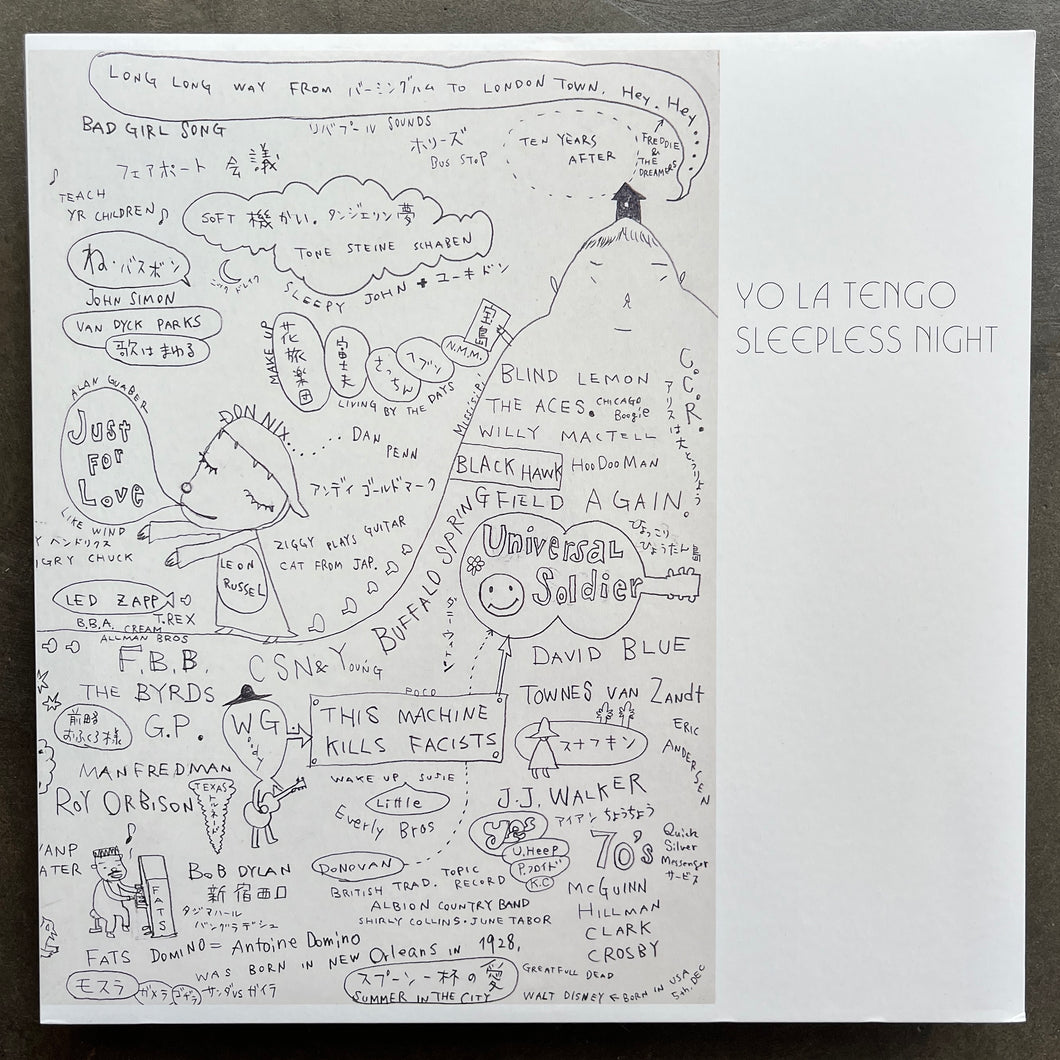 LONG LONG WAY FROM バーミングハム TO LONDON TOWN. Hey. Hey....
BAD GIRL SONG
リバプール SOUNDS
ホリーズ
BUS STOP
TEN YEARS
AFTER
FREDDIE
&
THE
DREAMERS
フェアポート 会議
♪
TEACH
YR CHILDREN♪
SOFT 機かい. タンジェリン夢
TONE STEINE SCHABEN
ね・バスボン
ニック ドレイク
SLEEPY JOHN + ユーキドン
JOHN SIMON
VAN DYCK PARKS
歌はまわる
YO LA TENGO
SLEEPLESS NIGHT
MAKE UP
花旅楽団
富士夫
さっちん
ヘブン
N.M.M.
宝島
LIVING BY THE DAYS
MISSISIPI
BLIND LEMON
THE ACES. CHICAGO
Boogie
WILLY MACTELL
BLACK HAWK
HOODOOMAN
C.C.R.
アリスは大とうりょう
ALAN GUABER
Just
For
Love
DON NIX......
.. DAN
PENN
アンディ ゴールドマーク
LIKE WIND
Y ヘンドリクス
NGRY CHUCK
ZIGGY PLAYS GUITAR
CAT FROM JAP.
LEON
RUSSEL
BUFFALO SPRINGFIELD AGAIN.
Universal
Soldier
ひょっこり
ひょうたん島
LED ZAPP
B.B.A. CREAM T.REX
ALLMAN BROS
F.B.B.
CSN& Young
ダニーウィトン
DAVID BLUE
THE BYRDS
POCO
TOWNES VAN Zandt
前略
おふくろ様
G.P.
WG.
oody
THIS MACHINE
KILLS FACISTS
スナフキン
ERIC
ANDERSEN
MANFREDMAN
WAKE UP, SUSIE
Little
Everly Bros
J.J. WALKER
ROY ORBISON
TEXAS
トルネード
アイアン ちょうちょう
yes
U.Heep
P.フロイド
K.C
70's
Quick
Silver
Messenger
サービス
ANP
ATER
FATS
BOB DYLAN
新宿西口
タジマハール
バングラデシュ
DONOVAN
BRITISH TRAD. TOPIC
RECORD
ALBION COUNTRY BAND
SHIRLY COLLINS・JUNE TABOR
McGUINN
HILLMAN
CLARK
CROSBY
FATS DOMINO = Antoine Domino
WAS BORN IN NEW Orleans IN 1928,
モスラ
ガメラ
ゴジラ
サンダ VS ガイラ
スプーン一杯の愛
SUMMER IN THE CITY
GREATFULL DEAD
WALT DISNEY ← BORN IN USA
5th. DEC